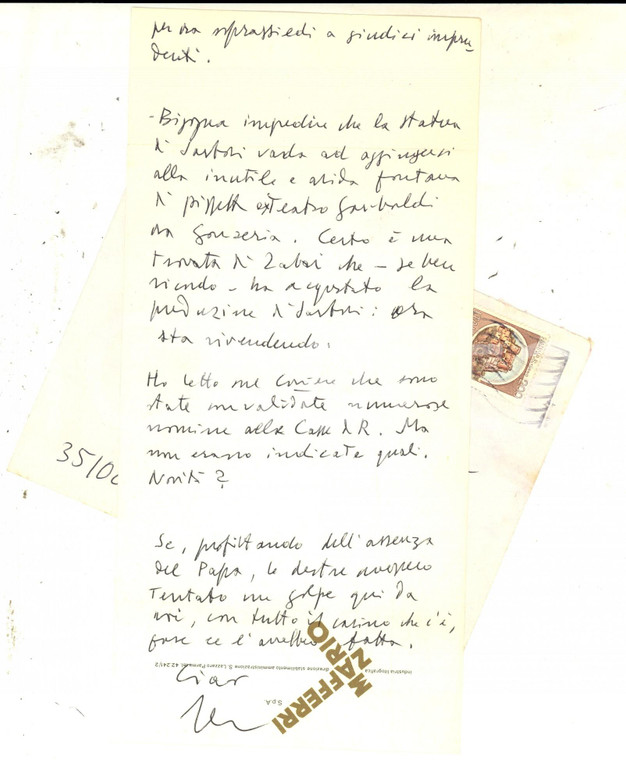 per ora soprassiedi a giudici impru-
denti.
- Bisogna impedire che la statua
di Sartori vada ad aggiungersi
alla inutile e arida fontana
di piazzetta ex Teatro Garibaldi
ora Gonzeria. Certo è una
trovata di Zabai che - se ben
ricordo - ha acquistato la
produzione di Sartori: ora
sta rivendendo.
Ho letto sul Corriere che sono
state convalidate numerose
nomine alle Casse di R. Ma
non erano indicate quali.
Novità?
Se, profittando dell'assenza
del Papa, le destre avessero
tentato un golpe qui da
noi, con tutto il casino che c'è,
forse ce l'avrebbero fatta.
Ciao
35/0
MARIO
ZAFFERRI
SpA
industria litografica
direzione stabilimento amministrazione S. Lazzaro Parmense, 42.241/2